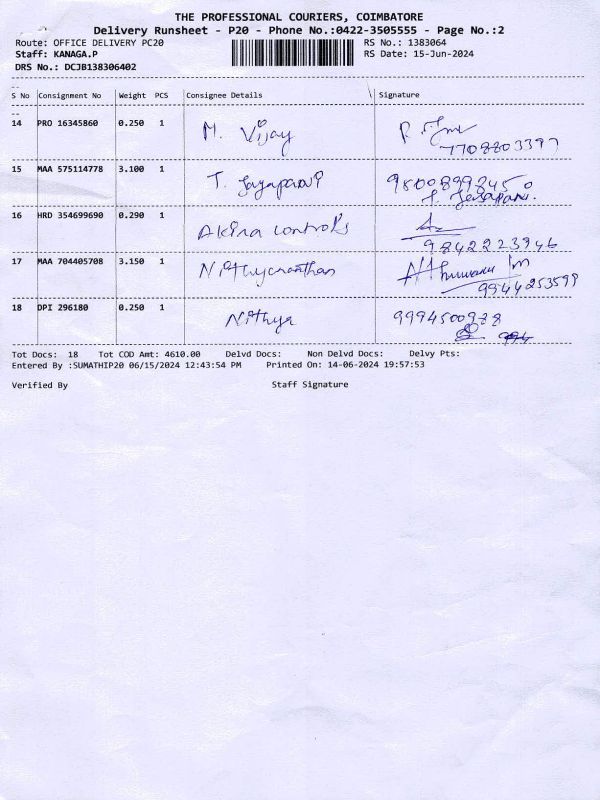 THE PROFESSIONAL COURIERS, COIMBATORE
Delivery Runsheet - P20 - Phone No.:0422-3505555 - Page No.:2
Route: OFFICE DELIVERY PC20 RS No.: 1383064
Staff: KANAGA.P RS Date: 15-Jun-2024
DRS No.: DCJB138306402
S No Consignment No Weight PCS Consignee Details Signature
14 PRO 16345860 0.250 1 M. Vijay
7708803397
15 MAA 575114778 3.100 1 T. Jayapani 9500899845 0
16 HRD 354699690 0.290 1 Akira controls
9842223946
17 MAA 704405708 3.150 1 Nithyananthan
9944253599
18 DPI 296180 0.250 1 Nithya 9994500938
Tot Docs: 18 Tot COD Amt: 4610.00 Delvd Docs: Non Delvd Docs: Delvy Pts:
Entered By :SUMATHIP20 06/15/2024 12:43:54 PM Printed On: 14-06-2024 19:57:53
Verified By Staff Signature